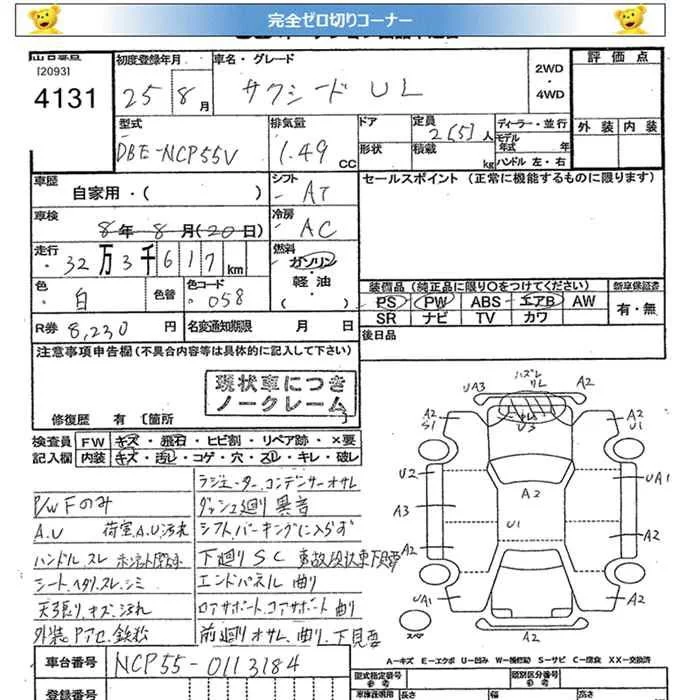 完全ゼロ切りコーナー
[2093]
4131
初度登録年月
25 8 月
車名・グレード
サクシード UL
2WD
・
4WD
評価点
外装 内装
型式
DBE-NCP55V
排気量
1.49 CC
ドア
形状
定員
2[5]人
積載
kg
ディーラー・並行
モデル年式 年
ハンドル 左・右
車歴
自家用・( )
シフト
AT
セールスポイント(正常に機能するものに限ります)
車検
8年8月(20日)
冷房
AC
走行
32万3千617km
燃料
ガソリン
軽油
色
白
色替
色コード
058
装備品(純正品に限り○をつけてください)
PS PW ABS エアB AW
SR ナビ TV カワ
新車保証書
有・無
R券 8,230 円
名変通知期限 月 日
後日品
注意事項申告欄(不具合内容等は具体的に記入して下さい)
現状車につき
ノークレーム
修復歴 有 [箇所 ]
検査員 FW キズ・飛石・ヒビ割・リペア跡・×要
記入欄 内装 キズ・汚レ・コゲ・穴・スレ・キレ・破レ
P/W Fのみ
A.U 荷室.A.U汚れ
ハンドル スレ
シート.ヘタリ.スレ.シミ
天張り.キズ.汚れ
ラジエーター.コンデンサーオサレ
ダッシュ廻り異音
シフトパーキングに入らず
下廻りSC
エンドパネル曲り
コアサポート曲り
前廻りオサレ.曲り.下見要
UA3
ハズレ
リレ
A2
A2
S1
U3
A2
U1
U2
UA1
A3
A2
U1
A2
A2
UA1
A1
A2
スペア
A-キズ E-エクボ U-凹み W-補修跡 S-サビ C-腐食 XX-交換済
車台番号 NCP55-0113184
登録番号
型式指定番号
参考
類別区分番号
参考
長さ
幅
高さ